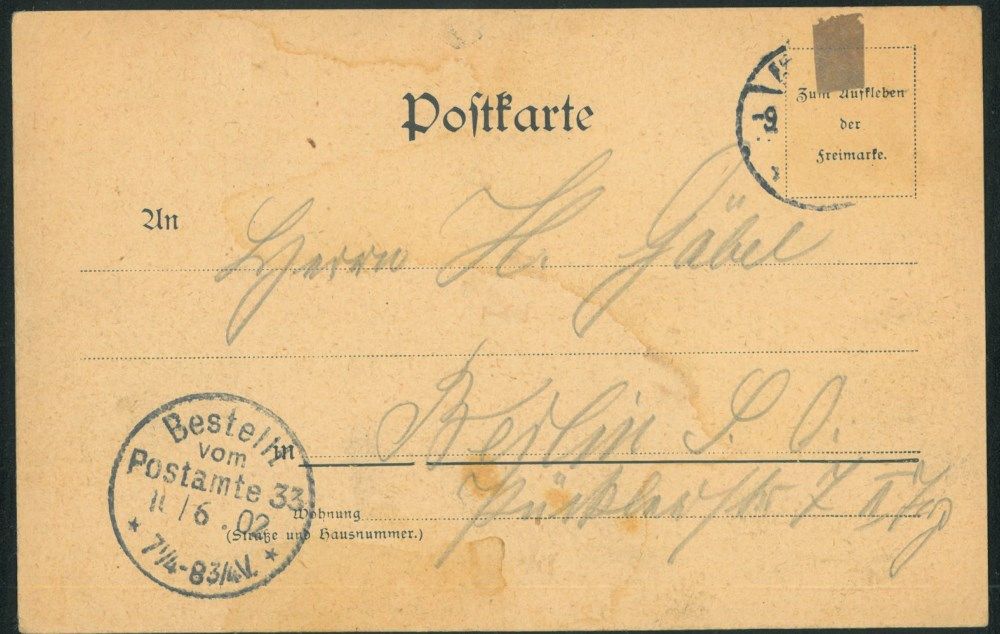 Postkarte
Zum Aufkleben
der
Freimarke.
An Herrn H. Gäbel
in Berlin S. O.
Wohnung Pücklerstr 7
(Straße und Hausnummer.)
Bestellt
vom
Postamte 33
11/6.02
* 7¼-8¾V. *